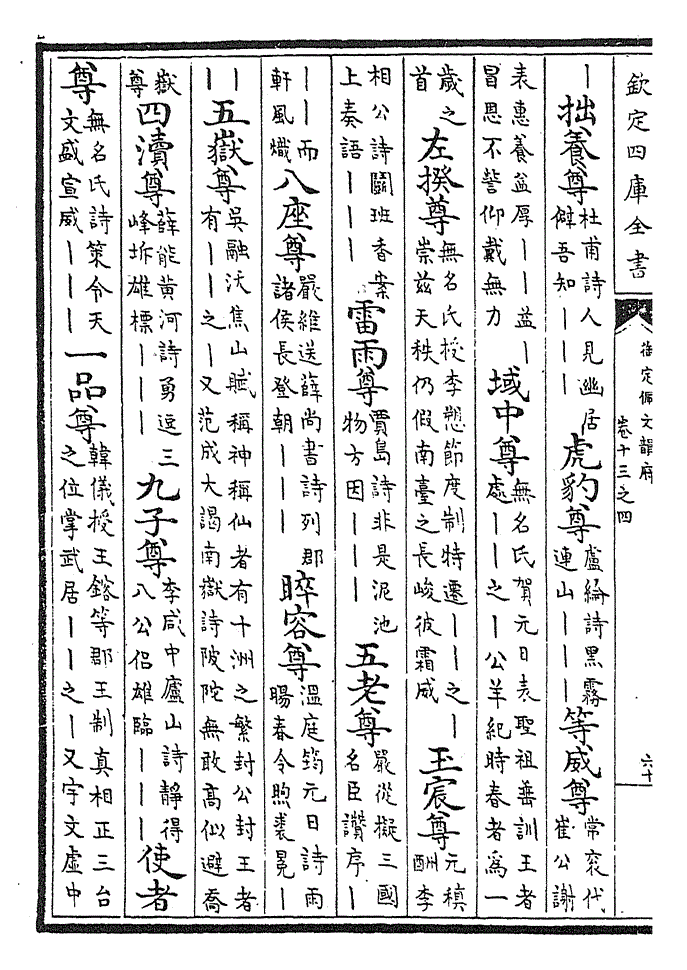 欽定四庫全書
御定佩文韻府
卷十三之四
六十
｜拙養尊
杜甫詩人見幽居
僻吾知｜｜｜
虎豹尊
盧綸詩黑霧
連山｜｜｜
等威尊
常袞代
崔公謝
表惠養益厚｜｜益｜
冒思不訾仰戴無力
域中尊
無名氏賀元日表聖祖垂訓王者
處｜｜之｜公羊紀時春者為一
歲之
首
左揆尊
無名氏授李愬節度制特遷｜｜之｜
崇茲天秩仍假南臺之長峻彼霜威
玉宸尊
元稹
酬李
相公詩闢班香案
上奏語｜｜｜
雷雨尊
賈島詩非是泥池
物方因｜｜｜
五老尊
嚴從擬三國
名臣讚序｜
｜｜而
軒風熾
八座尊
嚴維送薛尚書詩列郡
諸侯長登朝｜｜｜
睟容尊
溫庭筠元日詩雨
暘春令煦裘冕｜
｜｜
五嶽尊
吳融沃焦山賦稱神稱仙者有十洲之繁封公封王者
有｜｜之｜又范成大謁南嶽詩陂陀無敢高似避喬
嶽
尊
四瀆尊
薛能黃河詩勇逗三
峰坼雄標｜｜｜
九子尊
李咸中廬山詩靜得
八公侶雄臨｜｜｜
使者
尊
無名氏詩策令天
文盛宣威｜｜｜
一品尊
韓儀授王鎔等郡王制真相正三台
之位掌武居｜｜之｜又宇文虛中